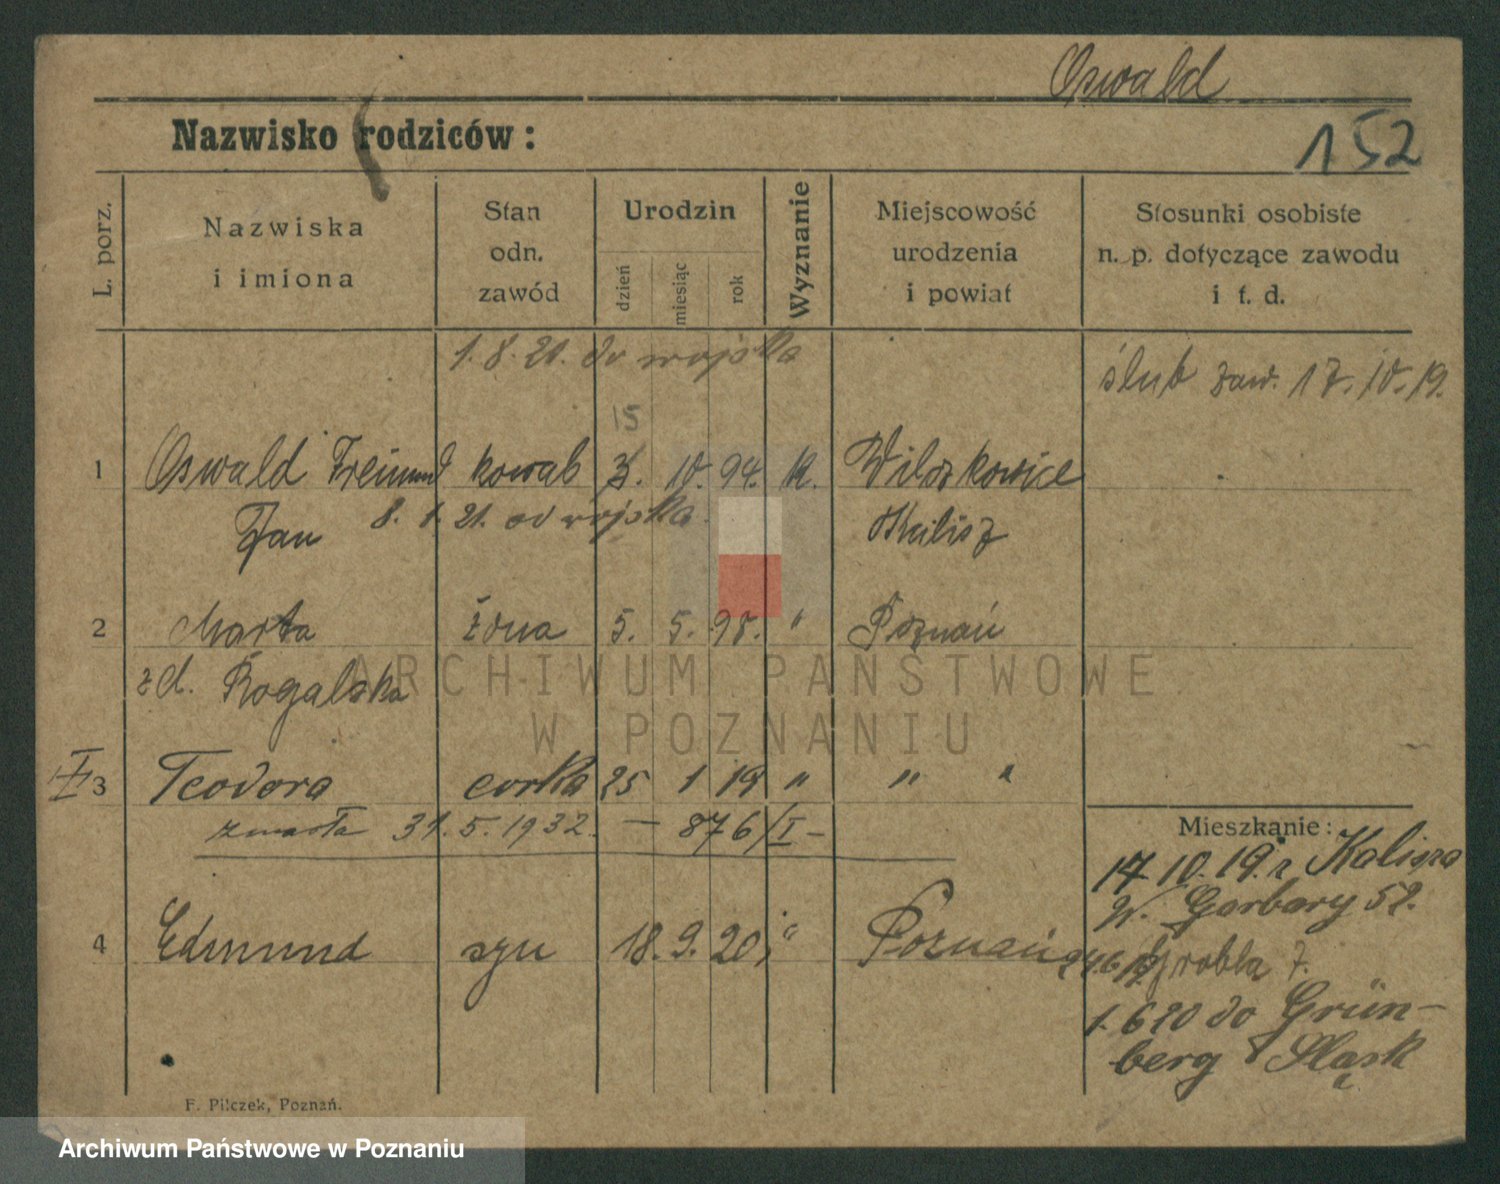 Oswald
Nazwisko rodziców:
152
L. porz.
Nazwiska i imiona
Stan odn. zawód
Urodzin
dzień
miesiąc
rok
Wyznanie
Miejscowość urodzenia i powiat
Stosunki osobiste n. p. dotyczące zawodu i t. d.
1. 8. 21. do wojska
ślub zaw. 17. 10. 19.
15
1 Oswald kowal 10. 94. k.
Jan 8. 1. 21. od wojska.
Kalisz
2 Marta żona 5. 5. 98. " Poznań
zd. Rogalska
ARCHIWUM PAŃSTWOWE
W POZNANIU
I 3 Teodora corka 25 1 19 " " "
zmarła 31. 5. 1932. — 876/I —
Mieszkanie:
17. 10. 19. z Kalisza
W. Garbary 52.
4 Edmund syn 18. 9. 20. " Poznań
Grobla 7.
1. 6 20 do Grün-
berg Śląsk
F. Pilczek, Poznań.
Archiwum Państwowe w Poznaniu